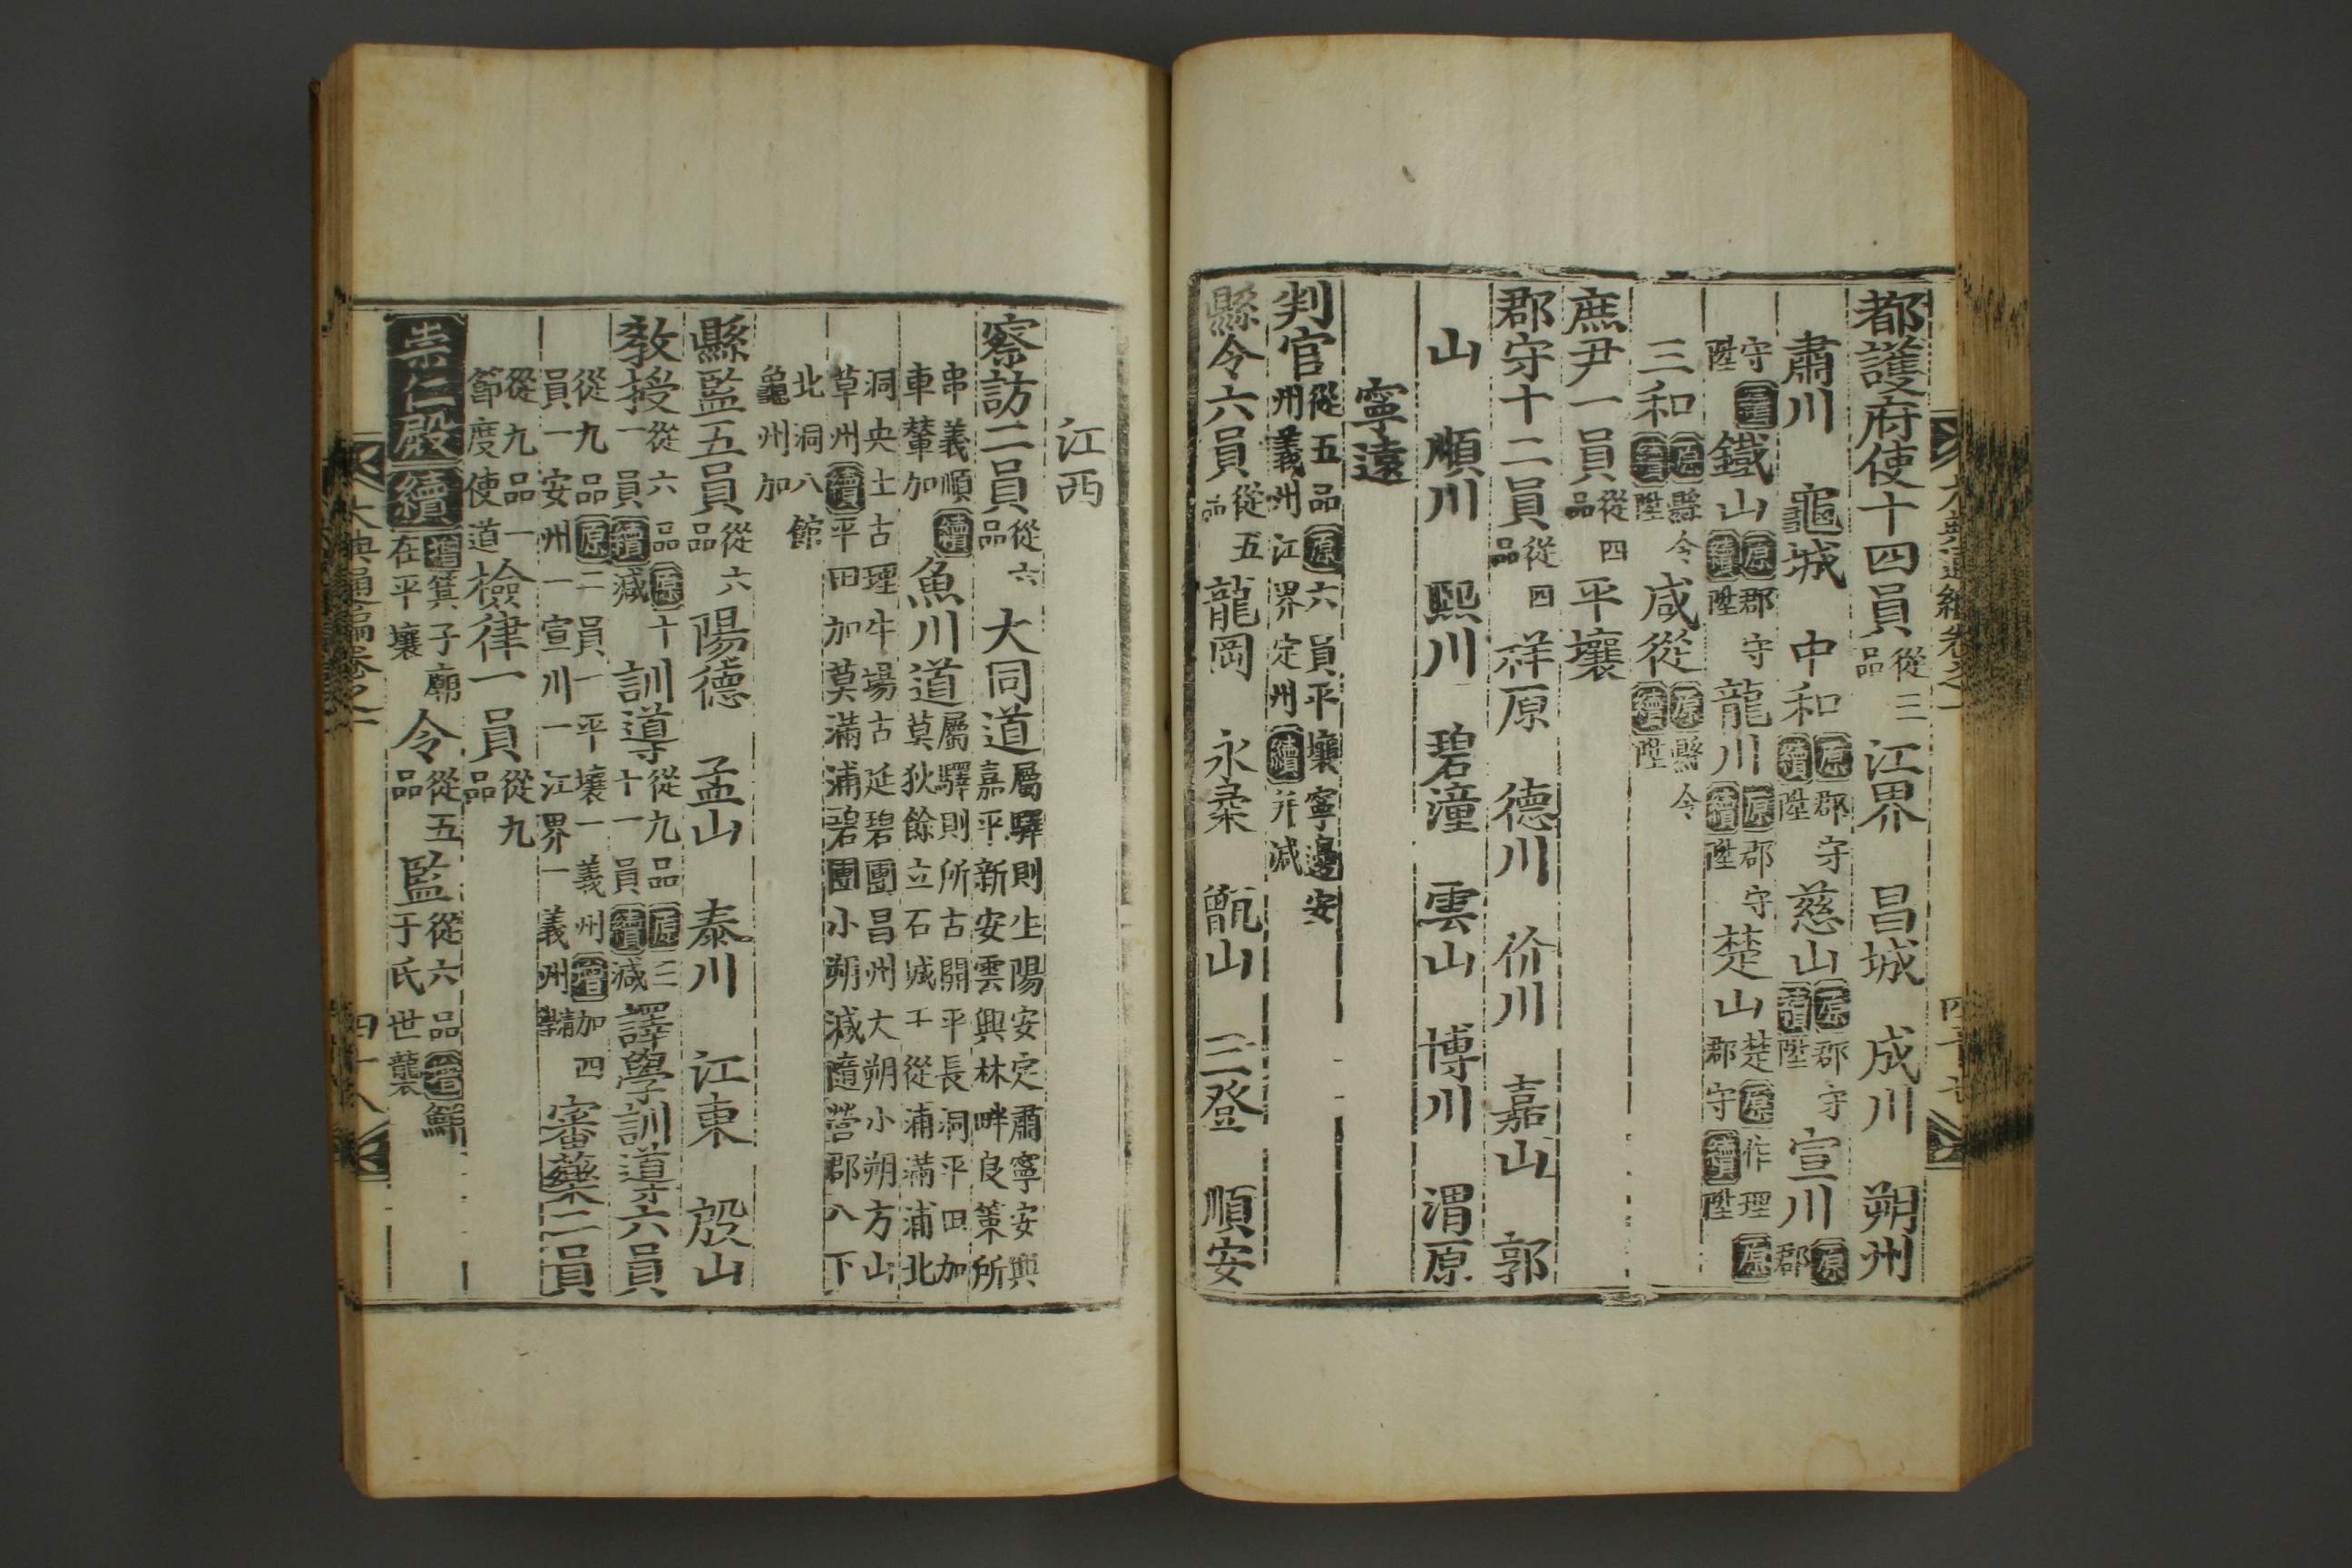 都護府使十四員從三品 江界 昌城 成川 朔州
肅川 龜城 中和原郡守續陞 慈山原郡守續陞 宣川原郡
守續陞 鐵山原郡守續陞 龍川原郡守續陞 楚山楚原作理原郡守續陞
三和原縣令續陞 咸從原縣令續陞
庶尹一員從四品 平壤
郡守十二員從四品 祥原 德川 价川 嘉山 郭
山 順川 熙川 碧潼 雲山 博川 渭原
寧遠
判官從五品原六員平壤寧邊安州義州江界定州續幷減
縣令六員從五品 龍岡 永柔 甑山 三登 順安
江西
察訪二員從六品 大同道屬驛則生陽安定肅寧安興嘉平新安雲興林畔良策所
串義順車輦加續 魚川道屬驛則所古開平長洞平田加莫狄餘立石城干從浦滿浦北
洞央土古理牛場古延碧團昌州大朔小朔方山草州續平田加莫滿浦碧團小朔減隨營郡八下
北洞八館龜州加
縣監五員從六品 陽德 孟山 泰川 江東 殷山
教授從六品原十一員續減 訓導從九品原三十一員續減 譯學訓導六員
從九品原二員一平壤一義州增加四員一安州一宣川一江界一義州 審藥二員
從九品一節度使道 檢律一員從九品
崇仁殿續增箕子廟在平壤 令從五品 監從六品增鮮于氏世襲
大典通編卷之一 四十八